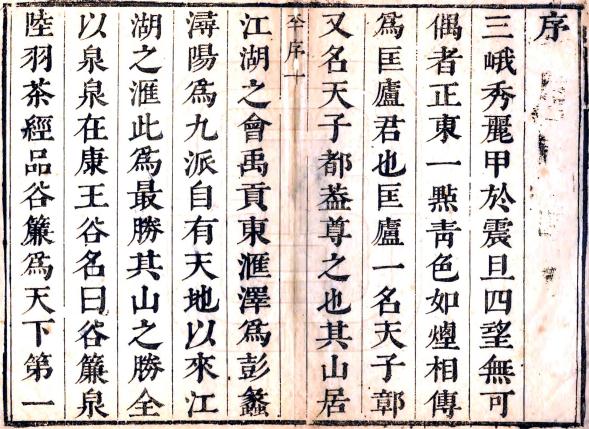 序
三峨秀麗甲於震旦四望無可
偶者正東一點靑色如煙相傳
爲匡廬君也匡廬一名天子鄣
又名天子都葢尊之也其山居
平序十
江湖之會禹貢東滙澤爲彭蠡
潯陽爲九派自有天地以來江
湖之滙此爲最勝其山之勝全
以泉泉在康王谷名曰谷簾泉
陸羽茶經品谷簾爲天下第一